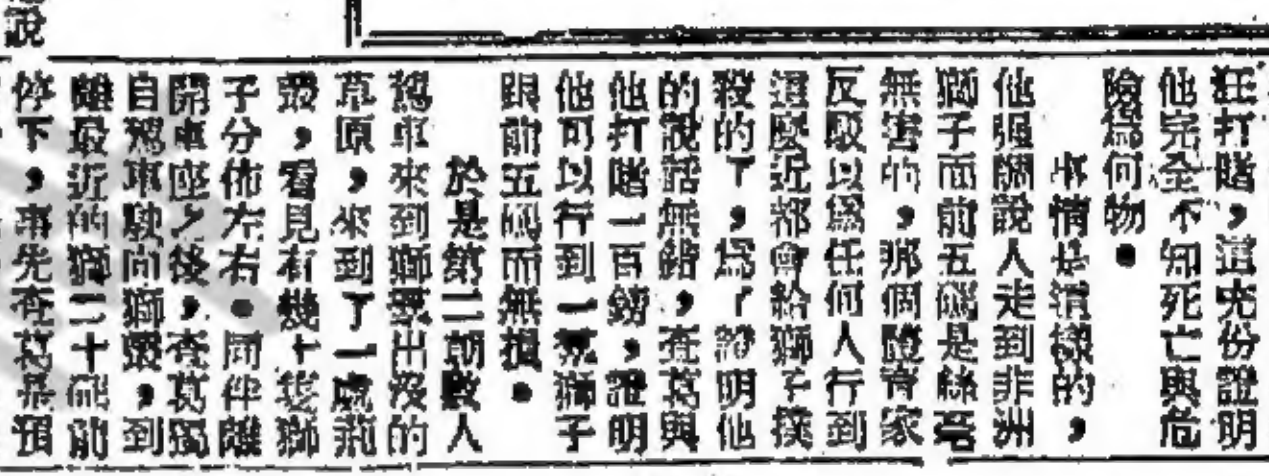 狂打賭，這充份證明
他完全不知死亡與危
險爲何物。
事情是這樣的，
他强調說人走到非洲
獅子面前五碼是絲毫
無害的，那個體育家
反駁以爲任何人行到
這麽近都會給獅子撲
殺的了，爲了證明他
的說話無錯，查葛與
他打賭一百鎊，證明
他可以行到一頭獅子
跟前五碼而無損。
於是第二朝數人
駕車來到獅羣出沒的
草原，來到了一處荊
叢，看見有幾十隻獅
子分佈左右。同伴離
開車座之後，查葛獨
自駕車駛向獅羣，到
離最近的獅二十碼前
停下，事先查葛是預
說